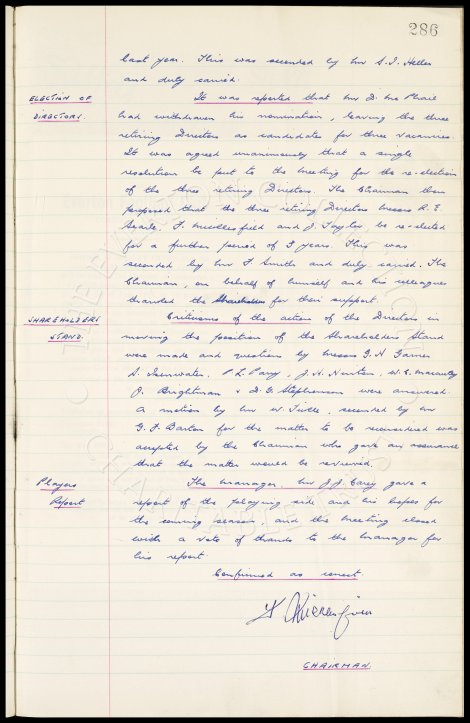 286
last year. This was seconded by Mr S.J. Heller
and duly carried.
ELECTION OF
DIRECTORS.
It was reported that Mr D. McPhail
had withdrawn his nomination, leaving the three
retiring Directors as candidates for three vacancies.
It was agreed unanimously that a single
resolution be put to the meeting for the re-election
of the three retiring Directors. The Chairman then
proposed that the three retiring Directors Messrs R.E.
Searle, F. Micklesfield and J. Taylor be re-elected
for a further period of 3 years. This was
seconded by Mr F Smith and duly carried. The
Chairman, on behalf of himself and his colleagues
thanked the Shareholders for their support.
SHAREHOLDERS
STAND.
Criticisms of the action of the Directors in
moving the position of the Shareholders Stand
were made and questions by Messrs G.H Garner
S. P.L. Parry, J.H. Newton, W.E.
J. Brightman + D.G. Stephenson were answered.
A motion by Mr W. seconded by Mr
G.F. Barton for the matter to be reconsidered was
accepted by the Chairman who gave an assurance
that the matter would be reviewed.
Players
Report
The Manager, Mr J.J. Carey gave a
report of the playing side and his hopes for
the coming season, and the meeting closed
with a vote of thanks to the Manager for
his report
Confirmed as correct.
CHAIRMAN.